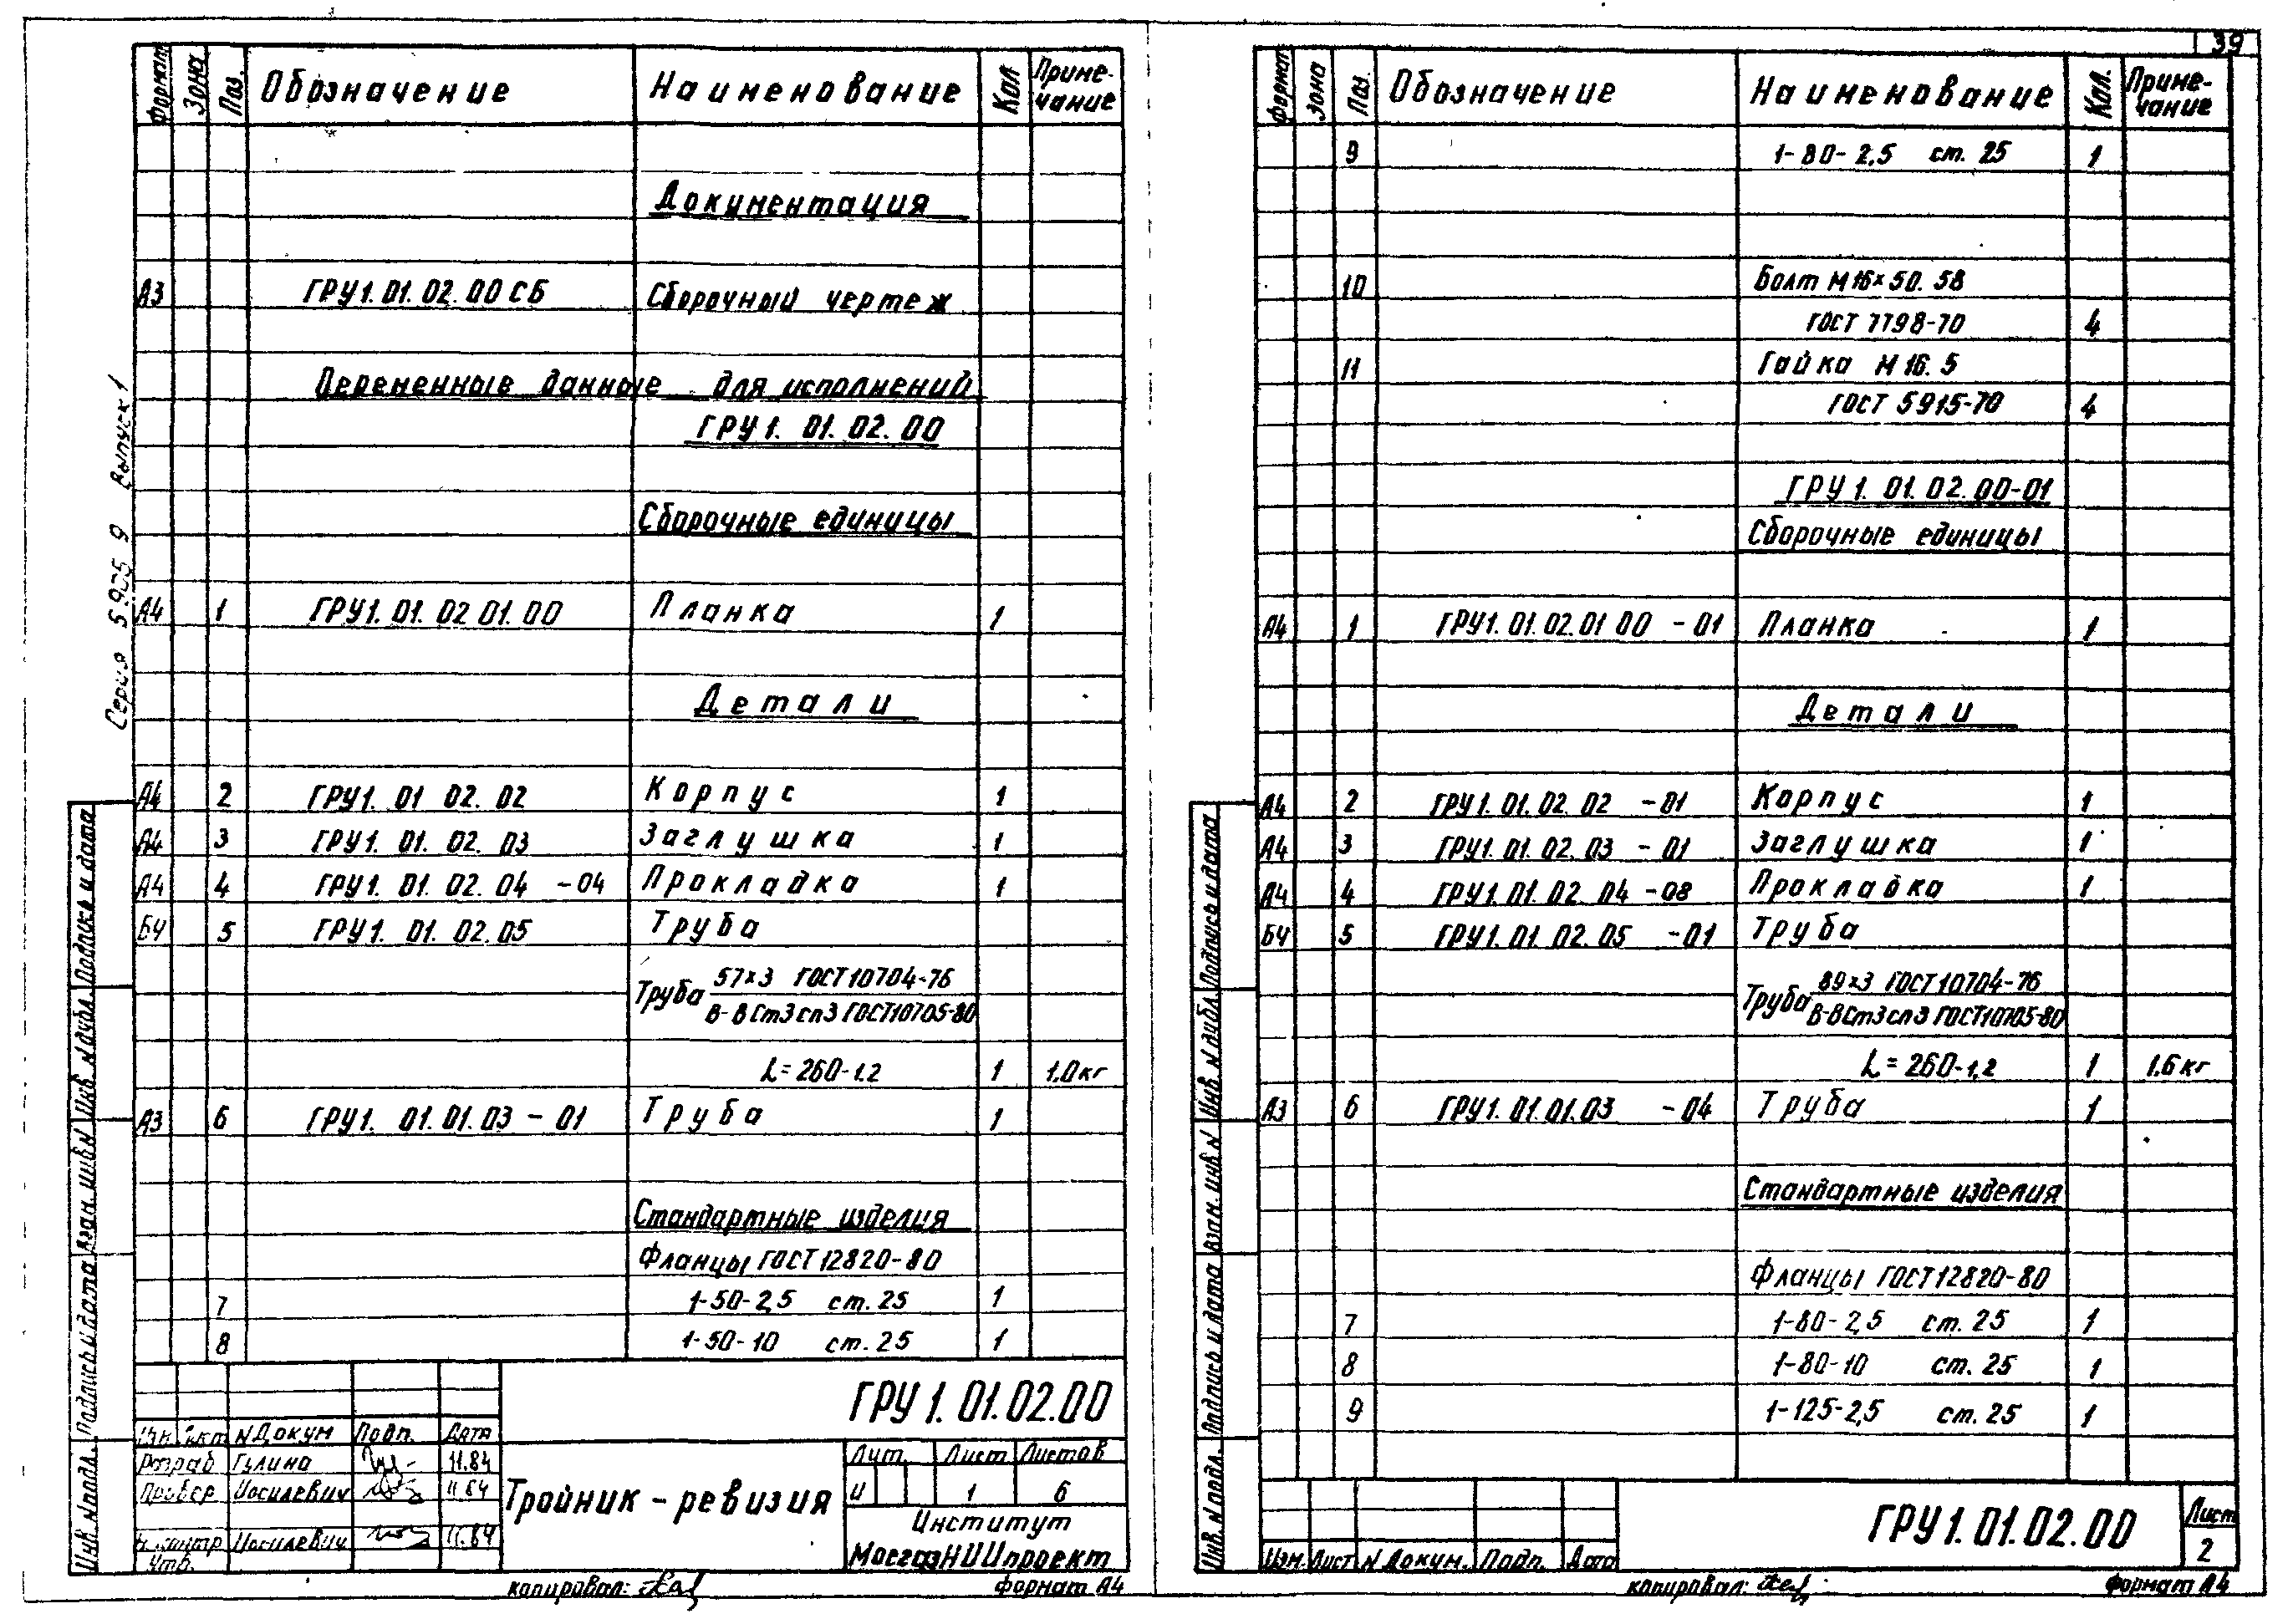 39
Формат Зона Поз. Обозначение Наименование Кол Приме-чание
Документация
А3 ГРУ1.01.02.00 СБ Сборочный чертеж
Переменные данные для исполнений
ГРУ1.01.02.00
Сборочные единицы
А4 1 ГРУ1.01.02 01.00 Планка 1
Детали
А4 2 ГРУ1.01 02.02 Корпус 1
А4 3 ГРУ1.01.02.03 Заглушка 1
А4 4 ГРУ1.01.02.04 -04 Прокладка 1
БЧ 5 ГРУ1.01.02.05 Труба
Труба 57×3 ГОСТ 10704-76
В-ВСт3сп3 ГОСТ10705-80
L=260-1.2 1 1.0кг
А3 6 ГРУ1.01.01.03-01 Труба 1
Стандартные изделия
Фланцы ГОСТ12820-80
7 1-50-2,5 ст.25 1
8 1-50-10 ст.25 1
Серия 5.905 9 Выпуск 1
Инв. N подл. Подпись и дата Взам. инв N Инв. N дубл. Подпись и дата
ГРУ1.01.02.00
N Докум Подп. Дата
Разраб Гулина 11.84
Провер Иосилевич 11.84
Н.контр Иосилевич 11.84
Утв.
Тройник-ревизия
Лит. Лист Листов
И 1 6
Институт
МосгазНИИпроект
копировал: Формат А4
Формат Зона Поз. Обозначение Наименование Кол. Приме-чание
9 1-80-2,5 ст. 25 1
10 Болт М16×50.58
ГОСТ 7798-70 4
11 Гайка М16.5
ГОСТ 5915-70 4
ГРУ1.01.02.00-01
Сборочные единицы
А4 1 ГРУ1.01.02.01 00 -01 Планка 1
Детали
А4 2 ГРУ1.01.02.02 -01 Корпус 1
А4 3 ГРУ1.01.02.03 -01 Заглушка 1
А4 4 ГРУ1.01.02.04 -08 Прокладка 1
БЧ 5 ГРУ1.01.02.05 -01 Труба
Труба 89×3 ГОСТ10704-76
В-ВСт3сп3 ГОСТ10705-80
L=260-1,2 1 1.6кг
А3 6 ГРУ1.01.01.03 -04 Труба 1
Стандартные изделия
Фланцы ГОСТ12820-80
7 1-80-2,5 ст.25 1
8 1-80-10 ст.25 1
9 1-125-2,5 ст.25 1
Инв. N подл. Подпись и дата Взам. инв N Инв. N дубл. Подпись и дата
Изм. Лист N Докум. Подп. Дата
ГРУ1.01.02.00
Лист
2
копировал: Формат А4